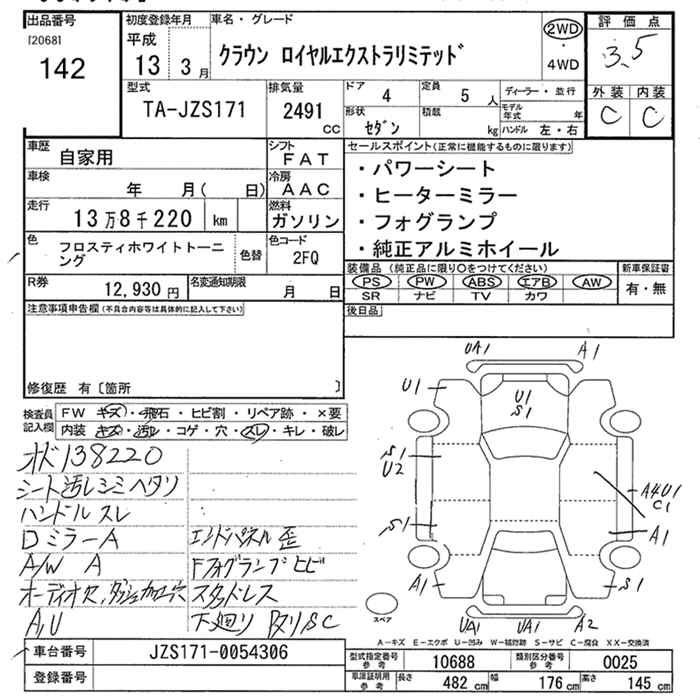 出品番号 初度登録年月 車名・グレード 評価点
[2068] 平成 クラウン ロイヤルエクストラリミテッド 2WD 3.5
142 13 3月 ・4WD
型式 排気量 ドア 4 定員 5人 ディーラー・並行 外装 内装
TA-JZS171 2491 CC 形状 セダン 積載 kg モデル年式 年 C C
ハンドル 左・右
車歴 自家用 シフト FAT セールスポイント(正常に機能するものに限ります)
車検 年 月( 日) 冷房 AAC ・パワーシート
走行 13万8千220 km 燃料 ガソリン ・ヒーターミラー
・フォグランプ
色 フロスティホワイトトーニング 色替 色コード 2FQ ・純正アルミホイール
R券 12,930円 名変通知期限 月 日 装備品(純正品に限り○をつけてください) 新車保証書
PS PW ABS エアB AW 有・無
SR ナビ TV カワ
注意事項申告欄(不具合内容等は具体的に記入して下さい) 後日品
修復歴 有[箇所 ]
検査員記入欄 FW キズ・飛石・ヒビ割・リペア跡・×要
内装 キズ・汚レ・コゲ・穴・スレ・キレ・破レ
オド138220
シート汚レシミヘタリ
ハンドルスレ
DミラーA エンドパネル歪
A/W A Fフォグランプヒビ
オーディオ欠,ダッシュ加工穴 スタッドレス
A,U 下廻りサビリSC
UA1 A1
U1 U1
S1
S1
U2 A4U1
C1
S1 A1
A1 S1
スペア UA1 UA1 A2
A−キズ E−エクボ U−凹み W−補修跡 S−サビ C−腐食 XX−交換済
車台番号 JZS171-0054306 型式指定番号 参考 10688 類別区分番号 参考 0025
登録番号 車庫証明用 参考 長さ 482cm 幅 176cm 高さ 145cm